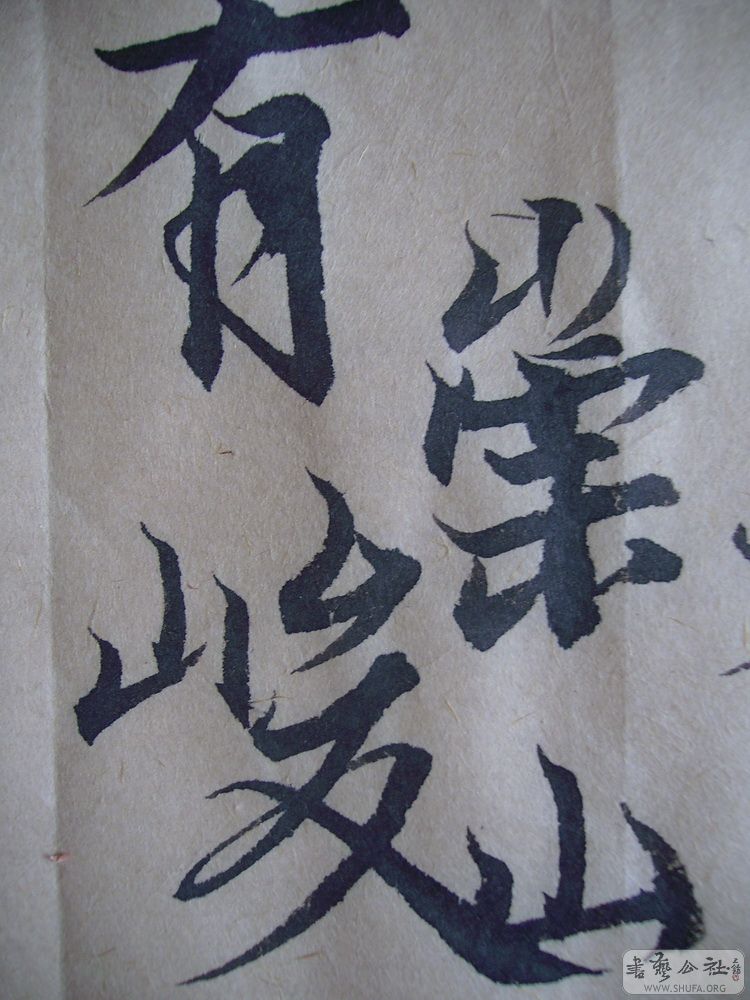 崇山
有峻
書藝公社
WWW.SHUFA.ORG